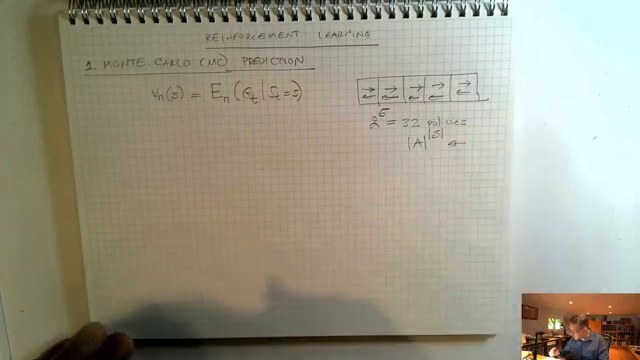 REINFORCEMENT LEARNING
1 MONTE CARLO (MC) PREDICTION
Vπ(s) = Eπ(Gt | St = s)
2^5 = 32 policies
|A|^|S| ←